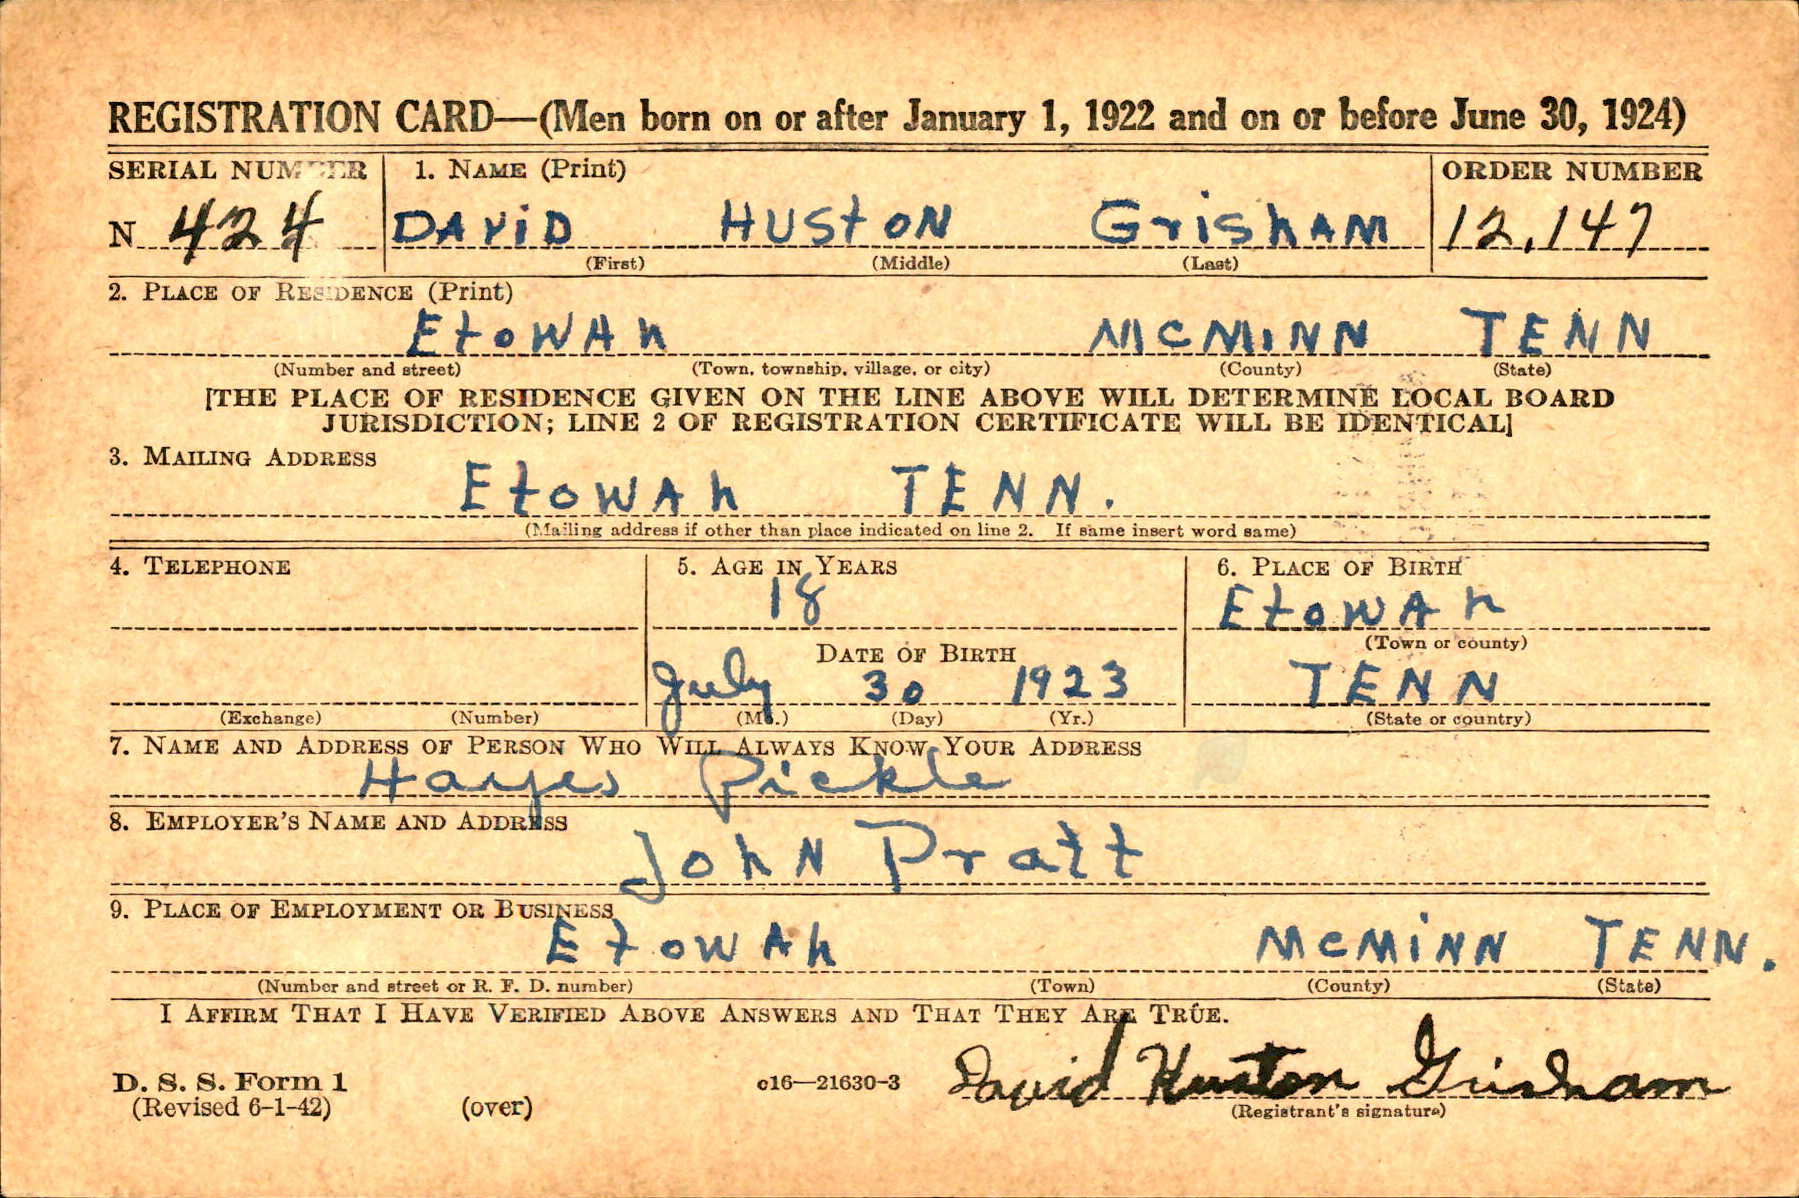 REGISTRATION CARD—(Men born on or after January 1, 1922 and on or before June 30, 1924)
SERIAL NUMBER 1. NAME (Print) ORDER NUMBER
N 424 DAViD HUStON GrishAM 12,147
(First) (Middle) (Last)
2. PLACE OF RESIDENCE (Print)
EtoWAh MCMINN TENN
(Number and street) (Town, township, village, or city) (County) (State)
[THE PLACE OF RESIDENCE GIVEN ON THE LINE ABOVE WILL DETERMINE LOCAL BOARD
JURISDICTION; LINE 2 OF REGISTRATION CERTIFICATE WILL BE IDENTICAL]
3. MAILING ADDRESS
EtoWAh TENN.
(Mailing address if other than place indicated on line 2. If same insert word same)
4. TELEPHONE 5. AGE IN YEARS 6. PLACE OF BIRTH
18 EtoWAh
(Town or county)
DATE OF BIRTH
July 30 1923 TENN
(Exchange) (Number) (Mo.) (Day) (Yr.) (State or country)
7. NAME AND ADDRESS OF PERSON WHO WILL ALWAYS KNOW YOUR ADDRESS
Hayes Pickle
8. EMPLOYER'S NAME AND ADDRESS
JohN Pratt
9. PLACE OF EMPLOYMENT OR BUSINESS
EtoWAh McMiNN TENN.
(Number and street or R. F. D. number) (Town) (County) (State)
I AFFIRM THAT I HAVE VERIFIED ABOVE ANSWERS AND THAT THEY ARE TRUE.
David Huston Grisham
D. S. S. Form 1 c16—21630-3
(Revised 6-1-42) (over) (Registrant's signature)